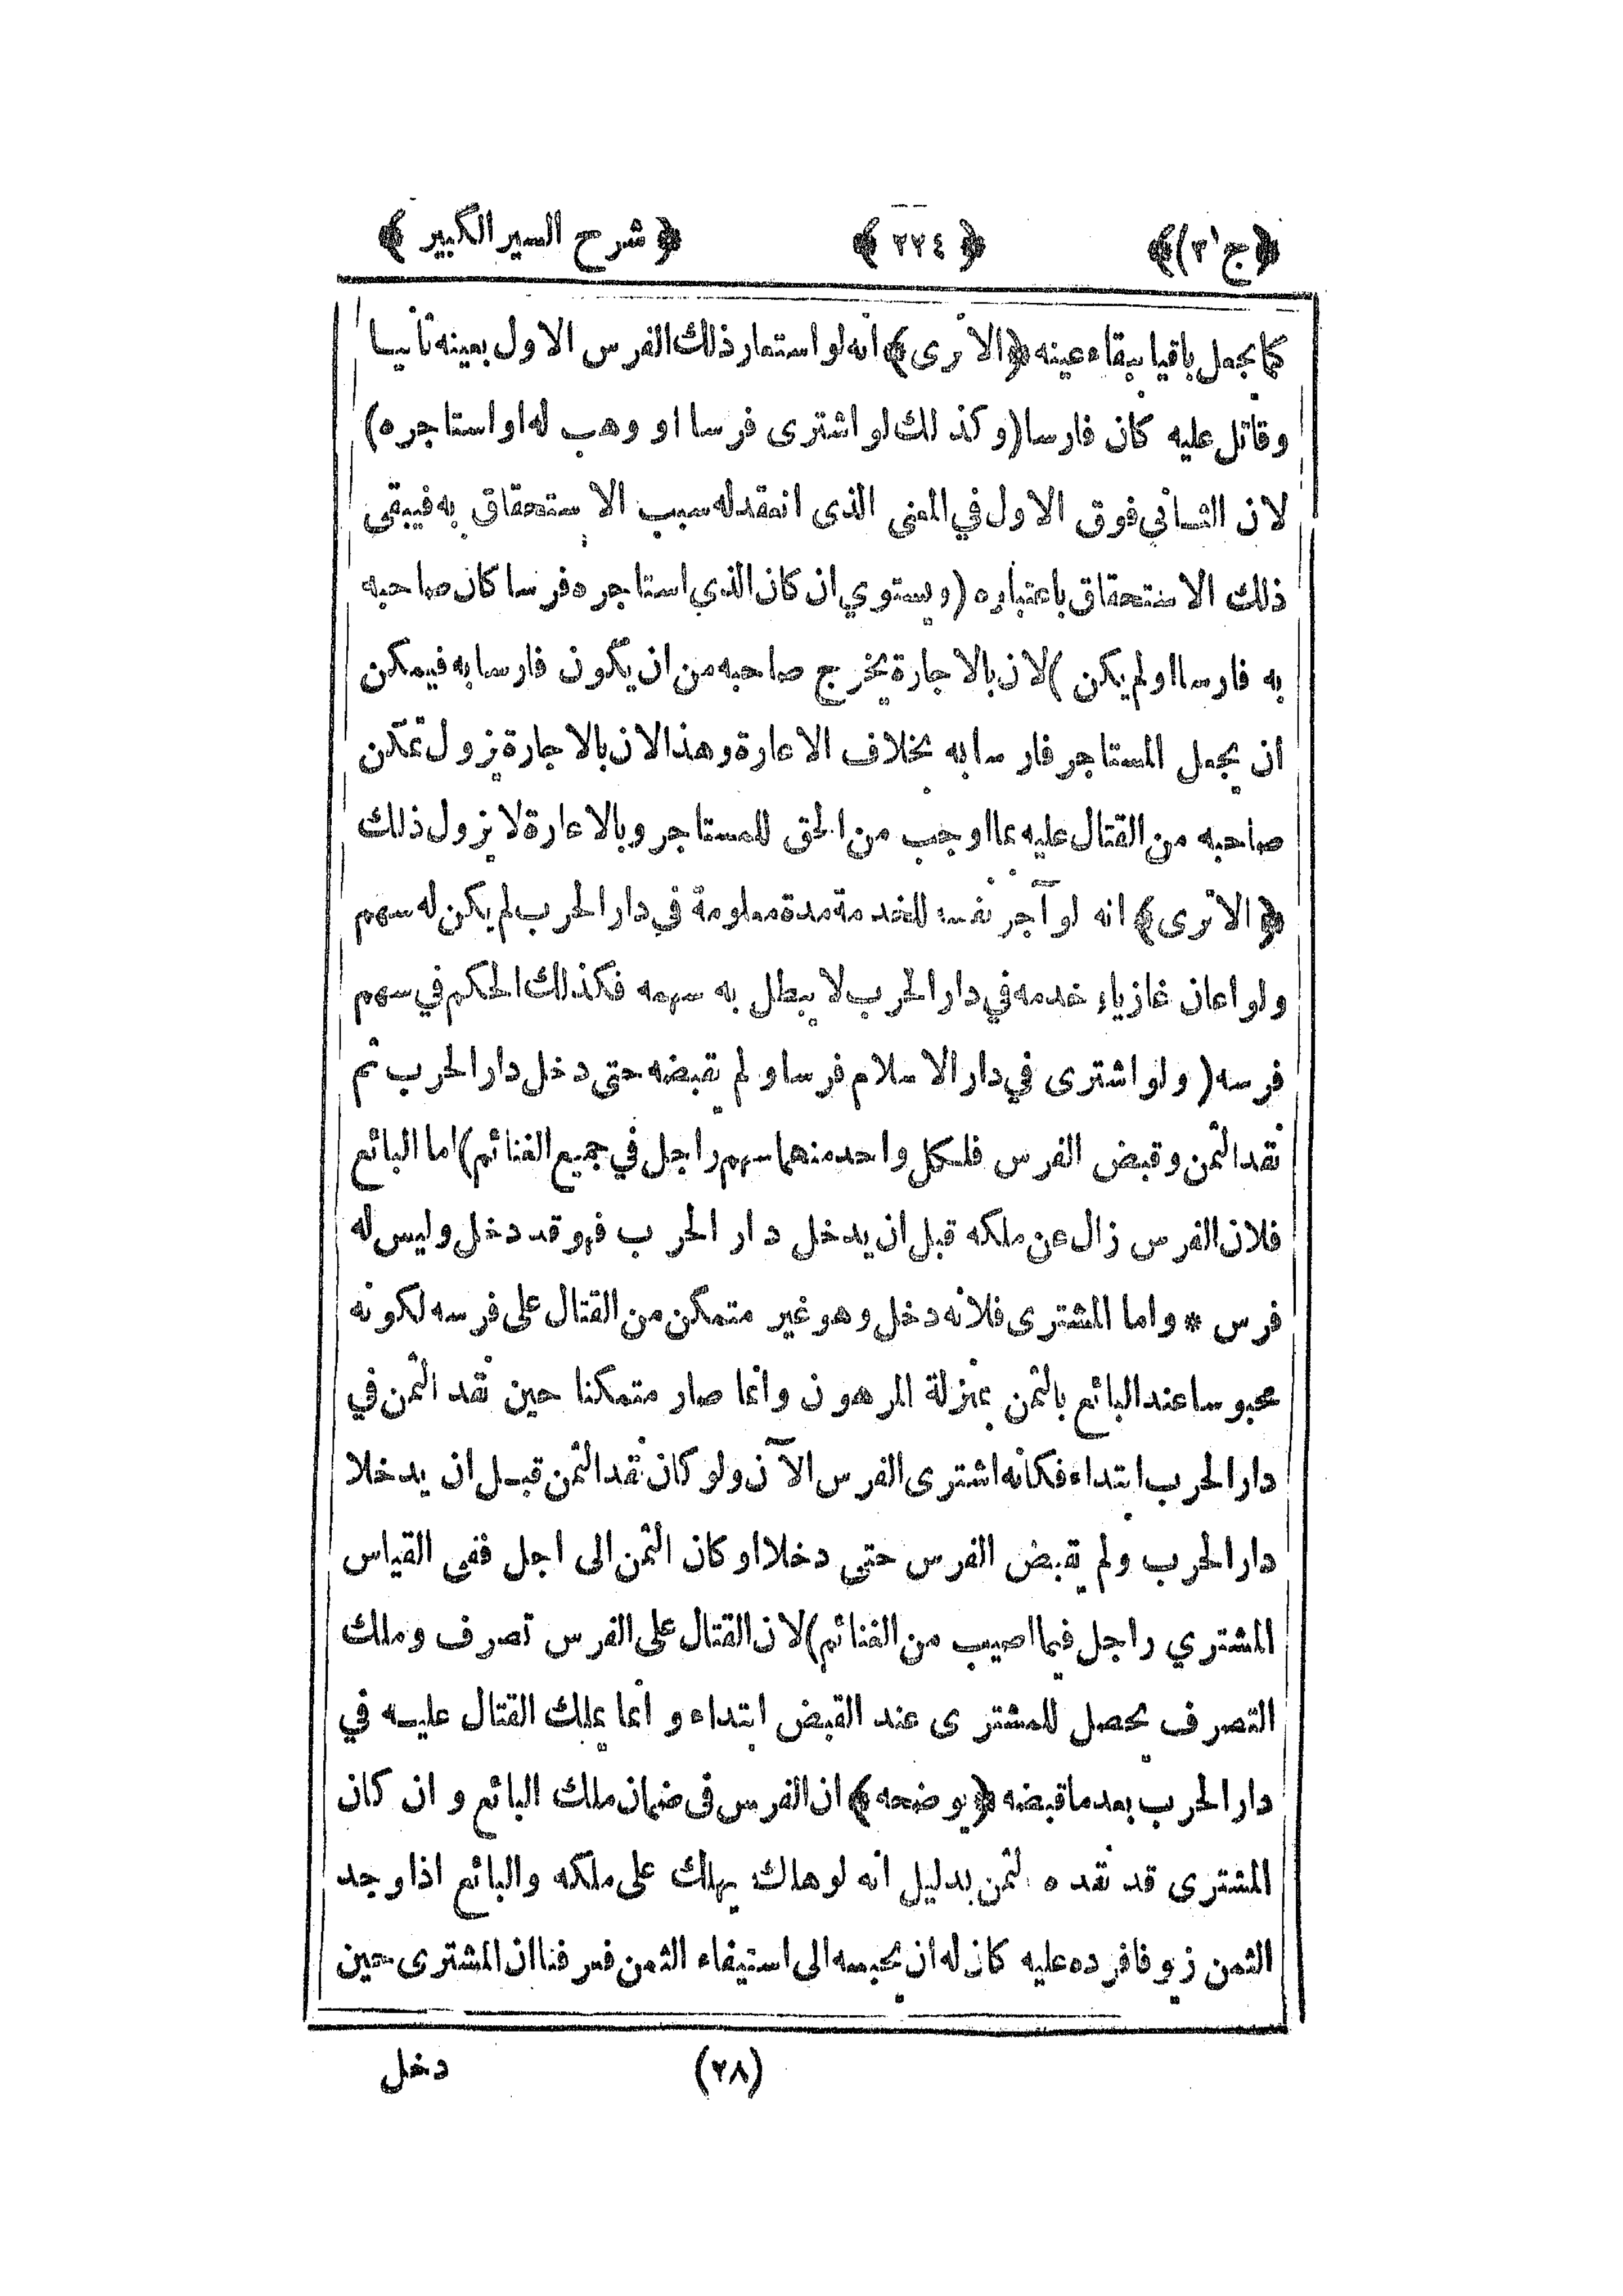 ﴿ج (٢)﴾ ﴿٢٢٤﴾ ﴿شرح السير الكبير﴾
كما يجعل باقيا ببقاء عينه ﴿الا ترى﴾ انه لو استعار ذلك الفرس الاول بعينه ثانيا
وقاتل عليه كان فارسا (وكذلك لو اشترى فرسا او وهب له او استاجره)
لان الثاني فوق الاول في المعنى الذى انعقد له سبب الاستحقاق به فيبقى
ذلك الاستحقاق باعتباره (ويستوي ان كان الذي استاجره فرسا كان صاحبه
به فارسا او لم يكن) لان بالاجارة يخرج صاحبه من ان يكون فارسا به فيمكن
ان يجعل المستاجر فارسا به بخلاف الاعارة وهذا لان بالاجارة يزول تمكن
صاحبه من القتال عليه بما اوجب من الحق للمستاجر وبالاعارة لا يزول ذلك
﴿الا ترى﴾ انه لو آجر نفسه للخدمة مدة معلومة في دار الحرب لم يكن له سهم
ولو اعان غازيا خدمه في دار الحرب لا يبطل به سهمه فكذلك الحكم في سهم
فرسه (ولو اشترى في دار الاسلام فرسا ولم يقبضه حتى دخل دار الحرب ثم
نقد الثمن وقبض الفرس فلكل واحد منهما سهم راجل في جميع الغنائم) اما البائع
فلان الفرس زال عن ملكه قبل ان يدخل دار الحرب فهو قد دخل وليس له
فرس * واما المشترى فلانه دخل وهو غير متمكن من القتال على فرسه لكونه
محبوسا عند البائع بالثمن بمنزلة المرهون وانما صار متمكنا حين نقد الثمن في
دار الحرب ابتداء فكانه اشترى الفرس الآن ولو كان نقد الثمن قبل ان يدخلا
دار الحرب ولم يقبض الفرس حتى دخلا او كان الثمن الى اجل ففى القياس
المشتري راجل فيما اصيب من الغنائم) لان القتال على الفرس تصرف وملك
التصرف يحصل للمشترى عند القبض ابتداء وانما يملك القتال عليه في
دار الحرب بعد ما قبضه ﴿يوضحه﴾ ان الفرس فى ضمان ملك البائع وان كان
المشترى قد نقده الثمن بدليل انه لو هلك يهلك على ملكه والبائع اذا وجد
الثمن زيوفا فرده عليه كان له ان يحبسه الى استيفاء الثمن فعرفنا ان المشترى حين
(٢٨) دخل